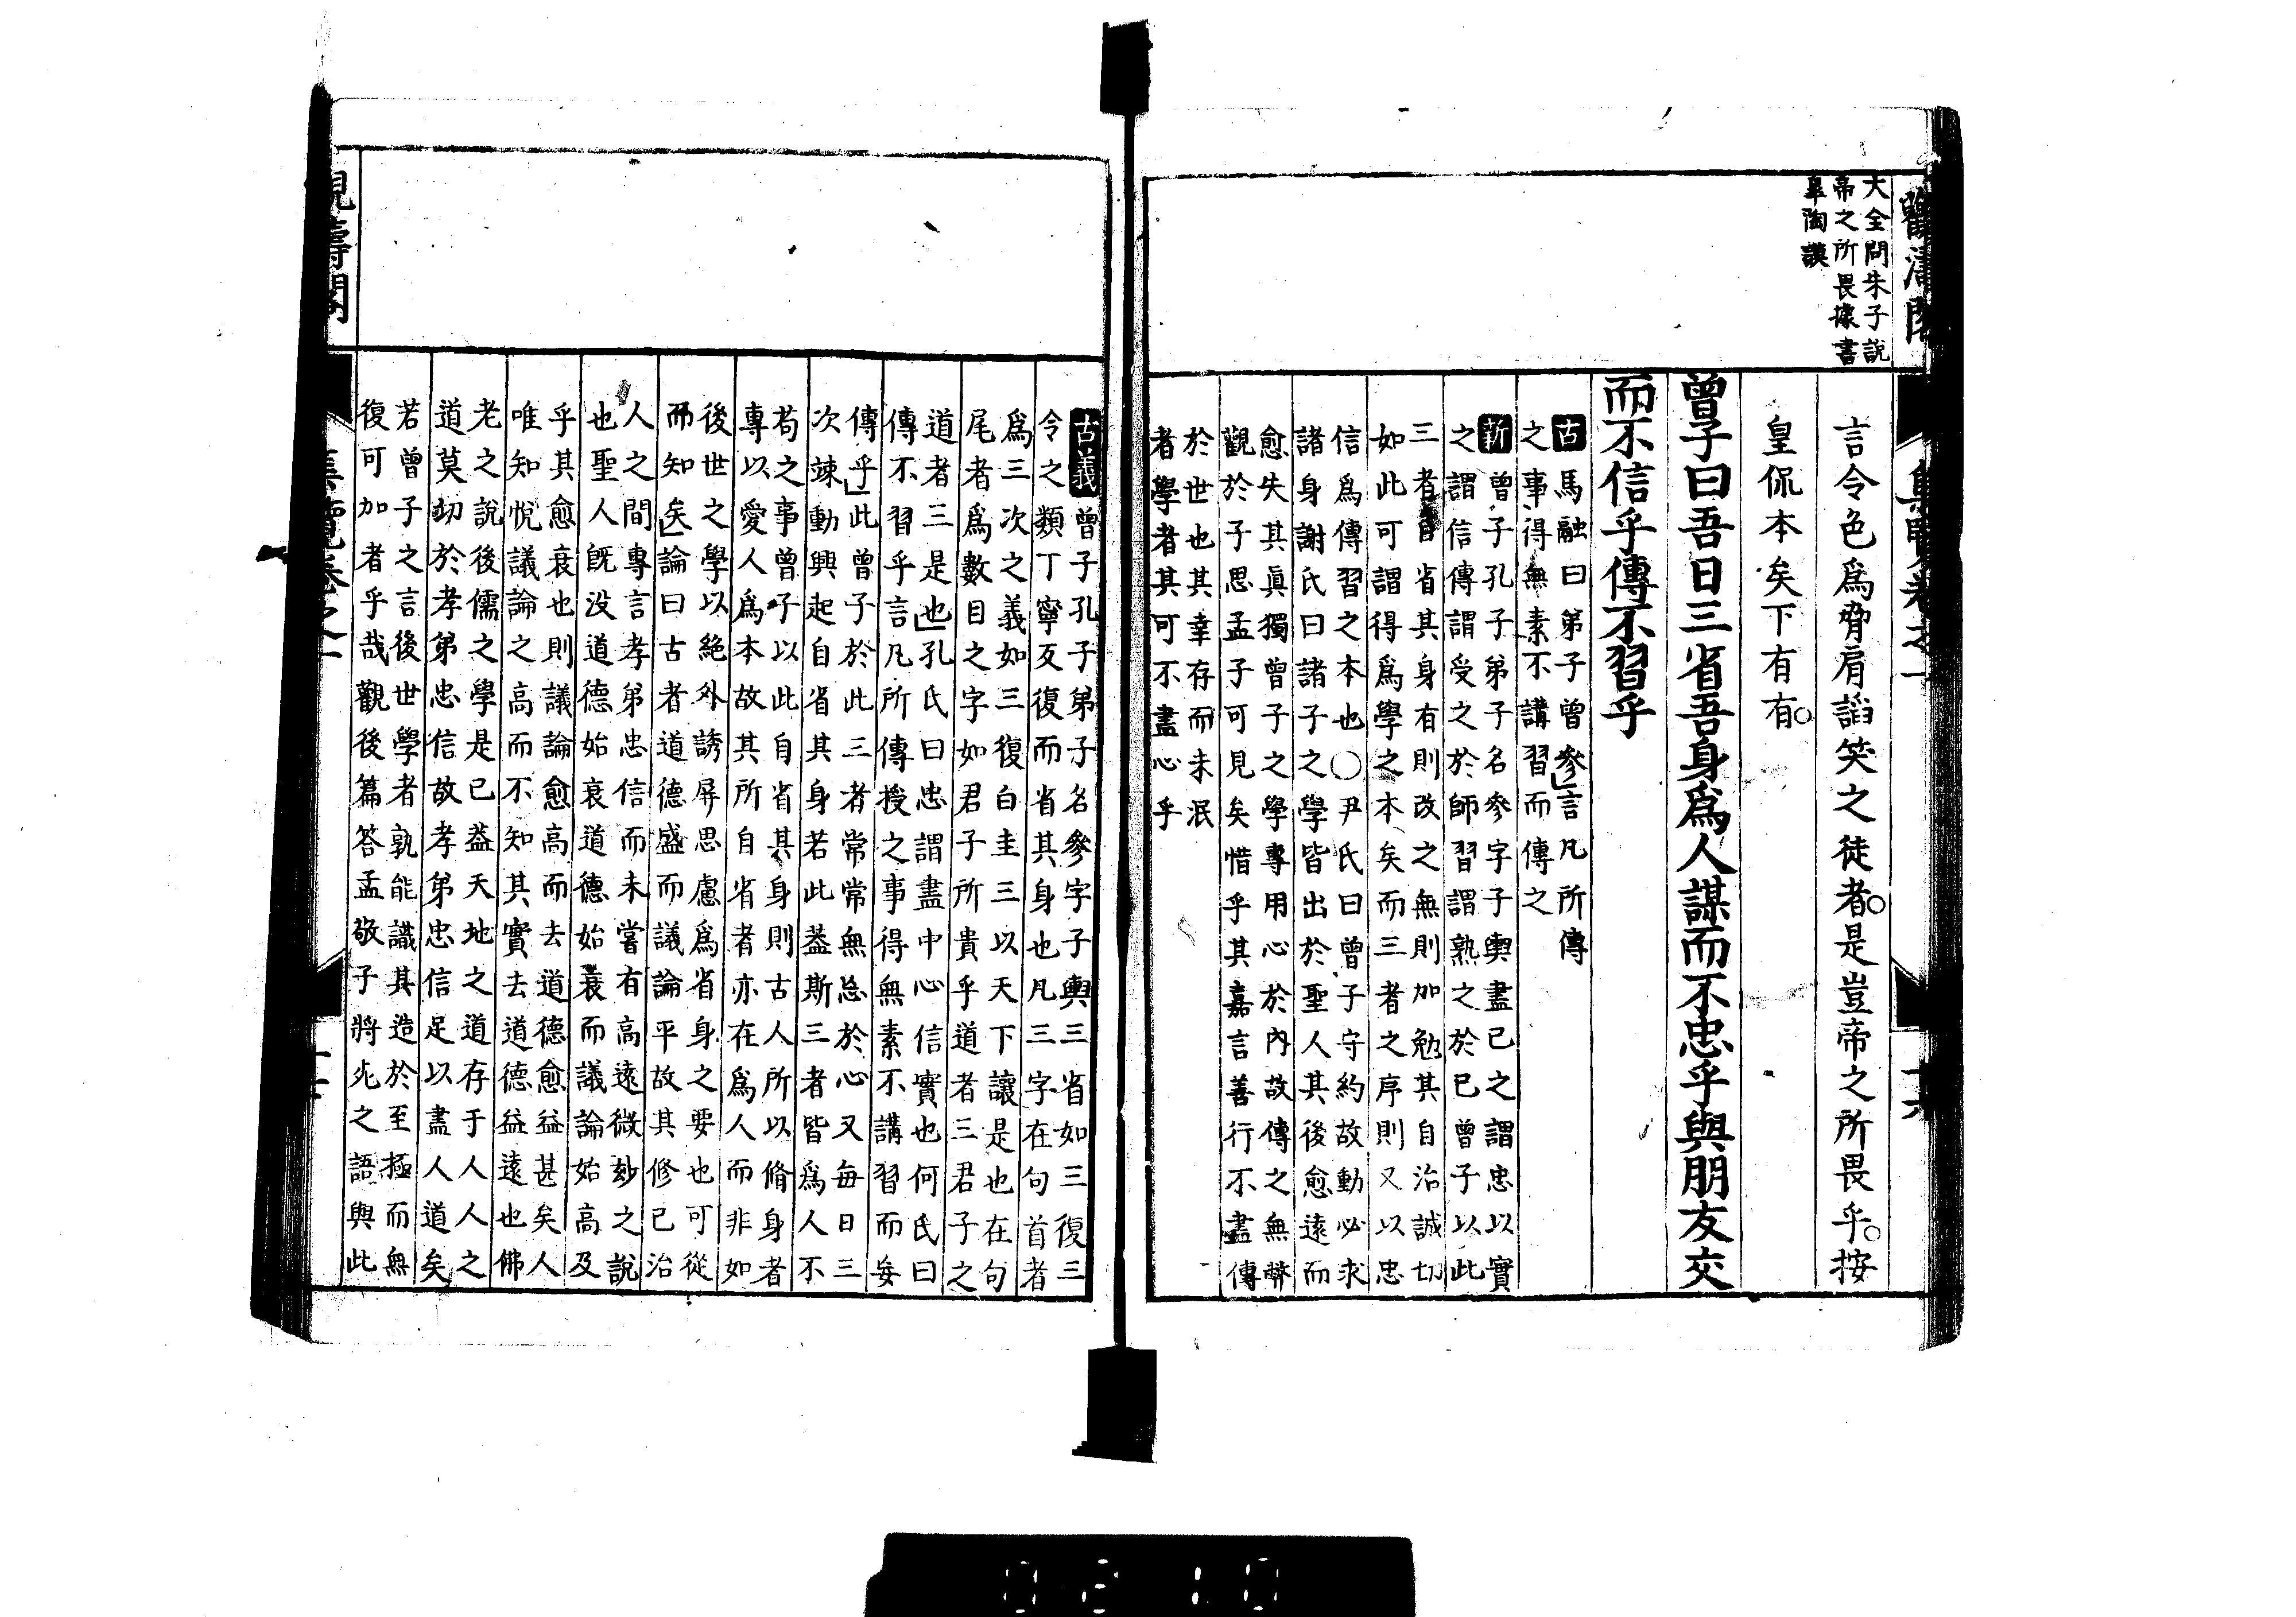 觀濤閣
大全問朱子說
帝之所畏據書
皐陶謨
集覽卷之一
十六
言令色爲脅肩謟笑之徒者是豈帝之所畏乎按
皇侃本矣下有有
曾子曰吾日三省吾身爲人謀而不忠乎與朋友交
而不信乎傳不習乎
古馬融曰弟子曾參言凡所傳
之事得無素不講習而傳之
新曾子孔子弟子名參字子輿盡己之謂忠以實
之謂信傳謂受之於師習謂熟之於己曾子以此
三者日省其身有則改之無則加勉其自治誠切
如此可謂得爲學之本矣而三者之序則又以忠
信爲傳習之本也○尹氏曰曾子守約故動必求
諸身謝氏曰諸子之學皆出於聖人其後愈遠而
愈失其眞獨曾子之學專用心於內故傳之無弊
觀於子思孟子可見矣惜乎其嘉言善行不盡傳
於世也其幸存而未泯
者學者其可不盡心乎
古義曾子孔子弟子名參字子輿三省如三復三
令之類丁寧反復而省其身也凡三字在句首者
爲三次之義如三復白圭三以天下讓是也在句
尾者爲數目之字如君子所貴乎道者三君子之
道者三是也孔氏曰忠謂盡中心信實也何氏曰
傳不習乎言凡所傳授之事得無素不講習而妄
傳乎此曾子於此三者常常無怠於心又每日三
次竦動興起自省其身若此葢斯三者皆爲人不
苟之事曾子以此自省其身則古人所以脩身者
專以愛人爲本故其所自省者亦在爲人而非如
後世之學以絕外誘屏思慮爲省身之要也可從
而知矣論曰古者道德盛而議論平故其修己治
人之間專言孝弟忠信而未嘗有高遠微玅之說
也聖人旣没道德始衰道德始衰而議論始高及
乎其愈衰也則議論愈高而去道德愈益甚矣人
唯知悅議論之高而不知其實去道德益遠也佛
老之說後儒之學是已葢天地之道存于人人之
道莫切於孝弟忠信故孝弟忠信足以盡人道矣
若曾子之言後世學者孰能識其造於至極而無
復可加者乎哉觀後篇答孟敬子將死之語與此
觀濤閣
集覽卷之一